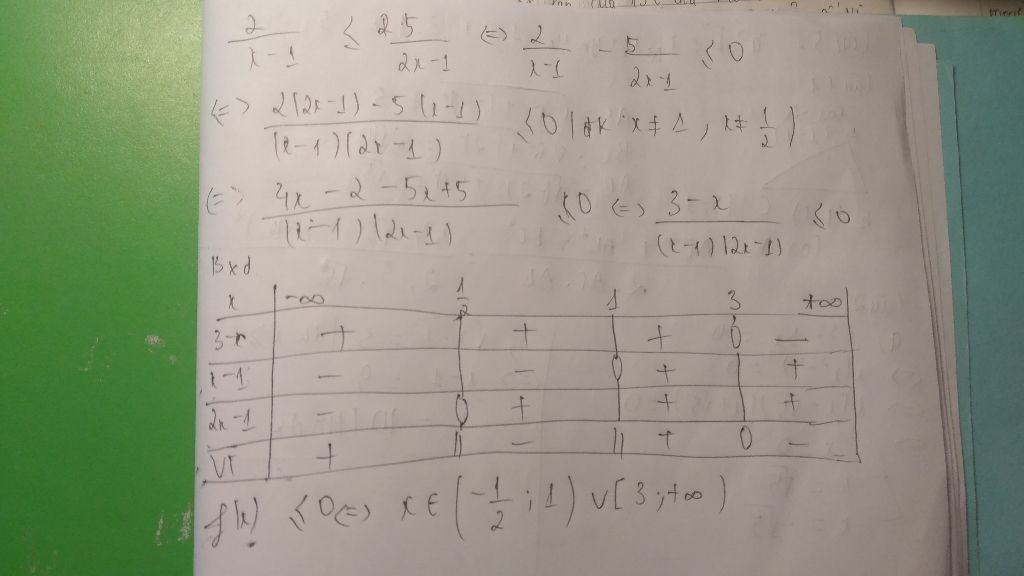 2/(x-1) ≤ 25/(2x-1) <=> 2/(x-1) - 5/(2x-1) ≤ 0
<=> (2(2x-1) - 5(x-1))/((x-1)(2x-1)) ≤ 0 (đk x ≠ 1, x ≠ 1/2)
<=> (4x - 2 - 5x + 5)/((x-1)(2x-1)) ≤ 0 <=> (3-x)/((x-1)(2x-1)) ≤ 0
Bxd
x -∞ 1/2 1 3 +∞
3-x + | + | + 0 -
x-1 - | - 0 + | +
2x-1 - 0 + | + | +
VT + || - || + 0 -
f(x) ≤ 0 <=> x ∈ (-1/2 ; 1) ∪ [3 ; +∞)